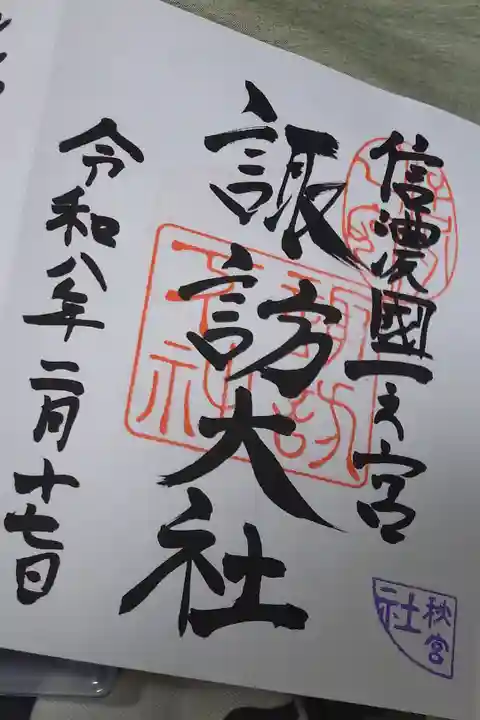 信濃國一之宮
諏訪大社
令和八年二月十七日
諏訪大社
秋宮
社